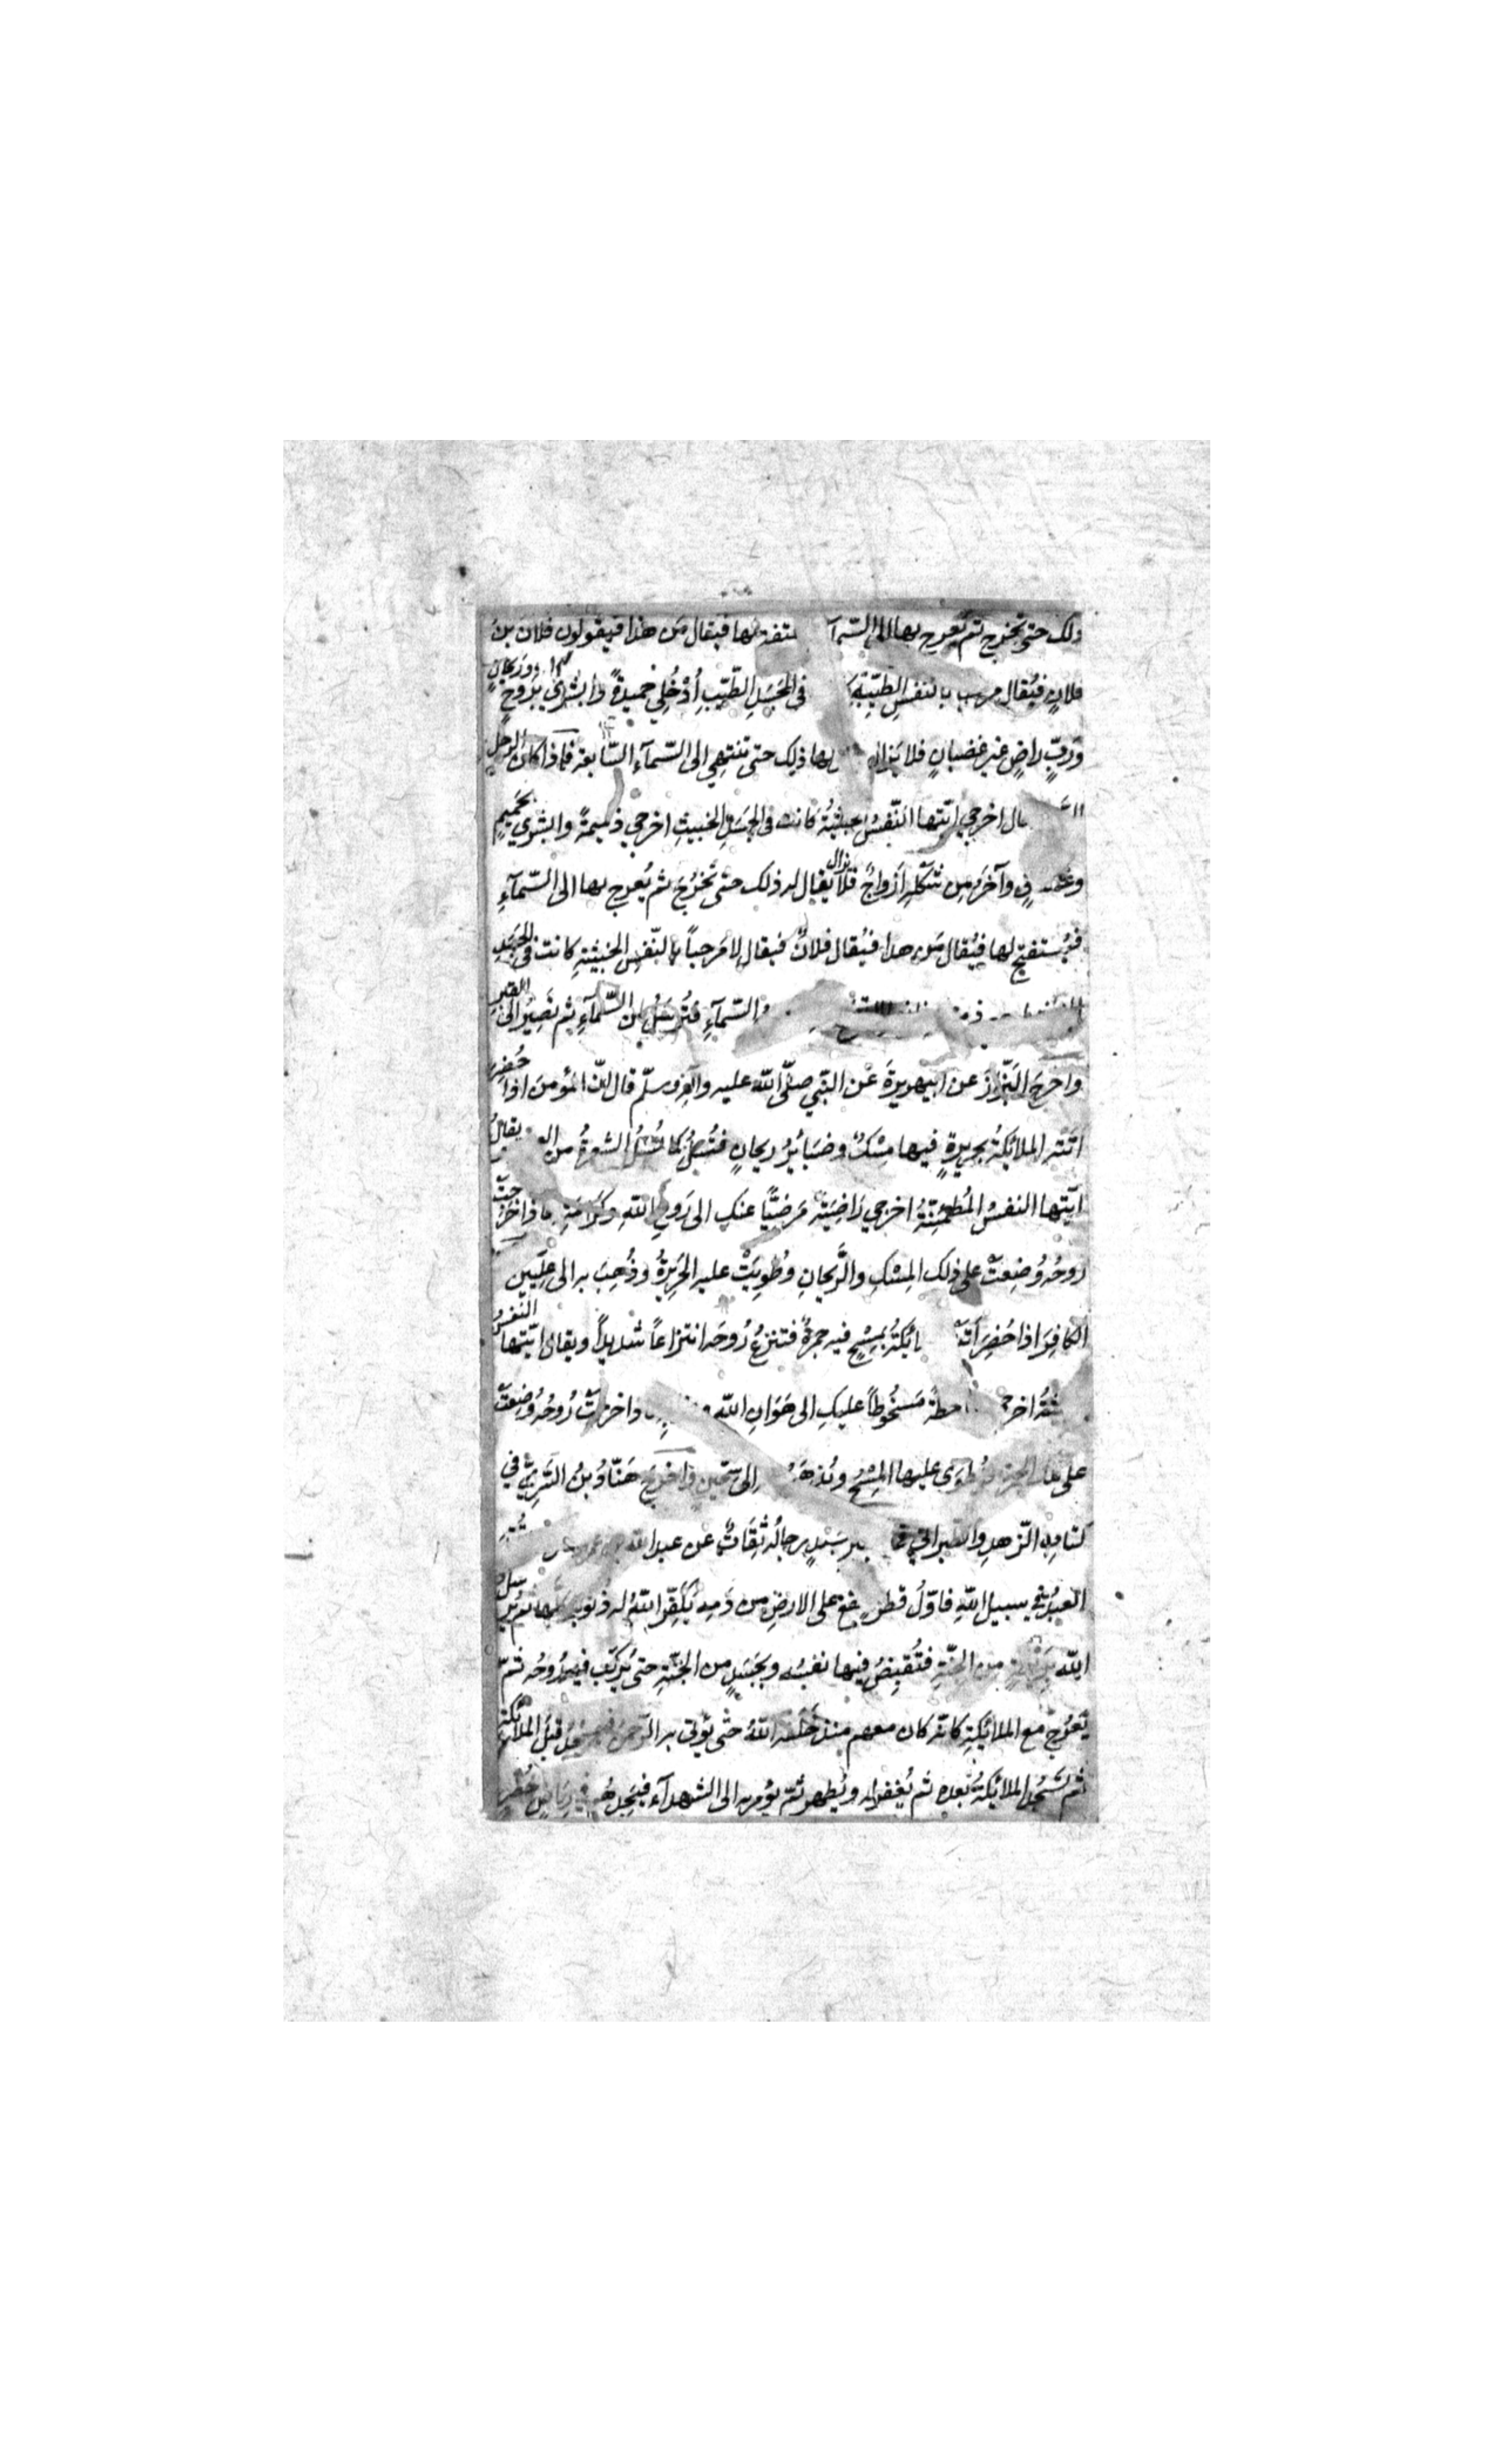 ذلك حتى تخرج ثم يُعرج بها الى السّمآ فيقال مَن هذا فيقولون فلان بنُ
فلانٍ فيُقال مرحبا بالنفسِ الطيّبةِ فى الجَسَدِ الطّيّبِ اُدْخُلِي حَميدةً وابشري بِرَوحٍ ورَيحانٍ
ورَبٍّ راضٍ غير غضبانٍ فلا يَزال لها ذلِك حتى تنتهي الى السّمآءِ السّابعة فاذا كان الرجل
اخرجي ايّتها النّفسُ الخبيثةُ كانت فى الجَسَدِ الخبيثِ اخرجي ذميمةً وابشري بحَميمٍ
وآخرَ مِن شَكْلِهِ اَزواجٌ فلا يزال يُقال لها ذلك حتى تَخرُجَ ثم يُعرج بها الى السّمآءِ
فيُستفتح لها فيُقال مَن هذا فيُقال فلانٌ فيقال لا مَرحباً بالنّفسِ الخبيثةِ كانت فى الجسَدِ
السّمآءِ فتُرسَلُ مِن السّمآءِ ثم تَصِيرُ الى القبرِ
واخرجَ البَزّارُ عن ابيهريرةَ عَن النبّي صلّى اللّه عليه وآلهِ وسلّم قال اِنّ المؤمنَ اذا حُضِرَ
اَتَتْهُ الملائكةُ بحريرةٍ فيها مِسْكٌ وضَبَائِرُ ريحانٍ فتُسَلُّ كما تُسَلُّ الشعرةُ من يقالُ
ايّتها النفسُ المُطمَئِنّةُ اخرجي رَاضِيَةً مَرضِيًّا عنكِ الى رَوحِ اللهِ وكَرَامَتِهِ فاذا خَرَجتْ
رُوحُه وُضِعتْ على ذلك المِسْكِ والرَّيحانِ وطُوِيَتْ عليه الحَرِيرةُ وذُهِبَ به الى علِّيّين
الكافِرَ اذا حُضِرَ بِمِسْحٍ فيه جمرةٌ فتنزعُ رُوحَه انتزاعاً شديداً ويقال ايّتها النّفسُ
مَسخُوطاً عليكِ الى هَوَانِ اللّه رُوحُه وُضِعتْ
على تلك الجمرة ويُطوى عليها المِسْحُ ويُذهَبُ الى سِجّينٍ واخرجَ هَنّادُ بنُ السَّرِيّ في
كتابهِ الزّهدِ والطبرانيّ بسَنَدٍ رجالُه ثِقَاتٌ عن عبد الله
العبدُ في سبيل اللهِ فاوّلُ قطرةٍ تقع على الارضِ من دَمِه يُكَفِّرُ اللّهُ له ذنوبَه كلَّها ثم يُرسِلُ
اللّه من الجنّةِ فتُقبَضُ فيها نفسُه وبجَسَدٍ من الجنّةِ حتى يُركّبَ فيه رُوحُه ثمّ
يَعرُجُ مع الملائكةِ كانّه كان معهم منذ خَلَقه اللّهُ حتّى يؤتى به الرّحمنَ فيسجُدُ قبلَ الملائكةِ
ثمّ تَسْجُدُ الملائكةُ بَعده ثم يُغفر له ويُطهر ثمّ يؤمر به الى الشهدآء فيَجِدُهُم في رياضٍ خُضرٍ